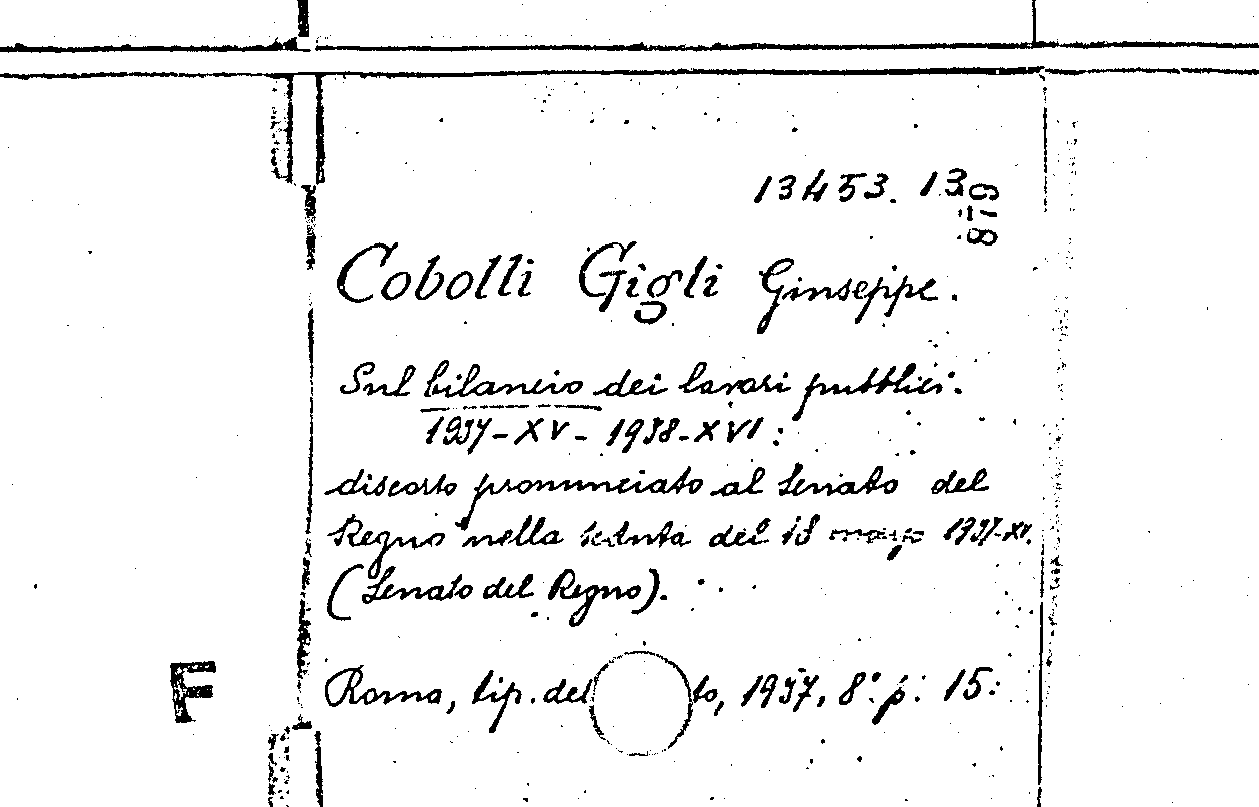 13453. 13
879
Cobolli Gigli Giuseppe.
Sul bilancio dei lavori pubblici.
1937-XV- 1938-XVI:
discorso pronunciato al Senato del
Regno nella seduta del 18 maggio 1937-XV.
(Senato del Regno).
F
Roma, tip. del to, 1937, 8° p. 15.